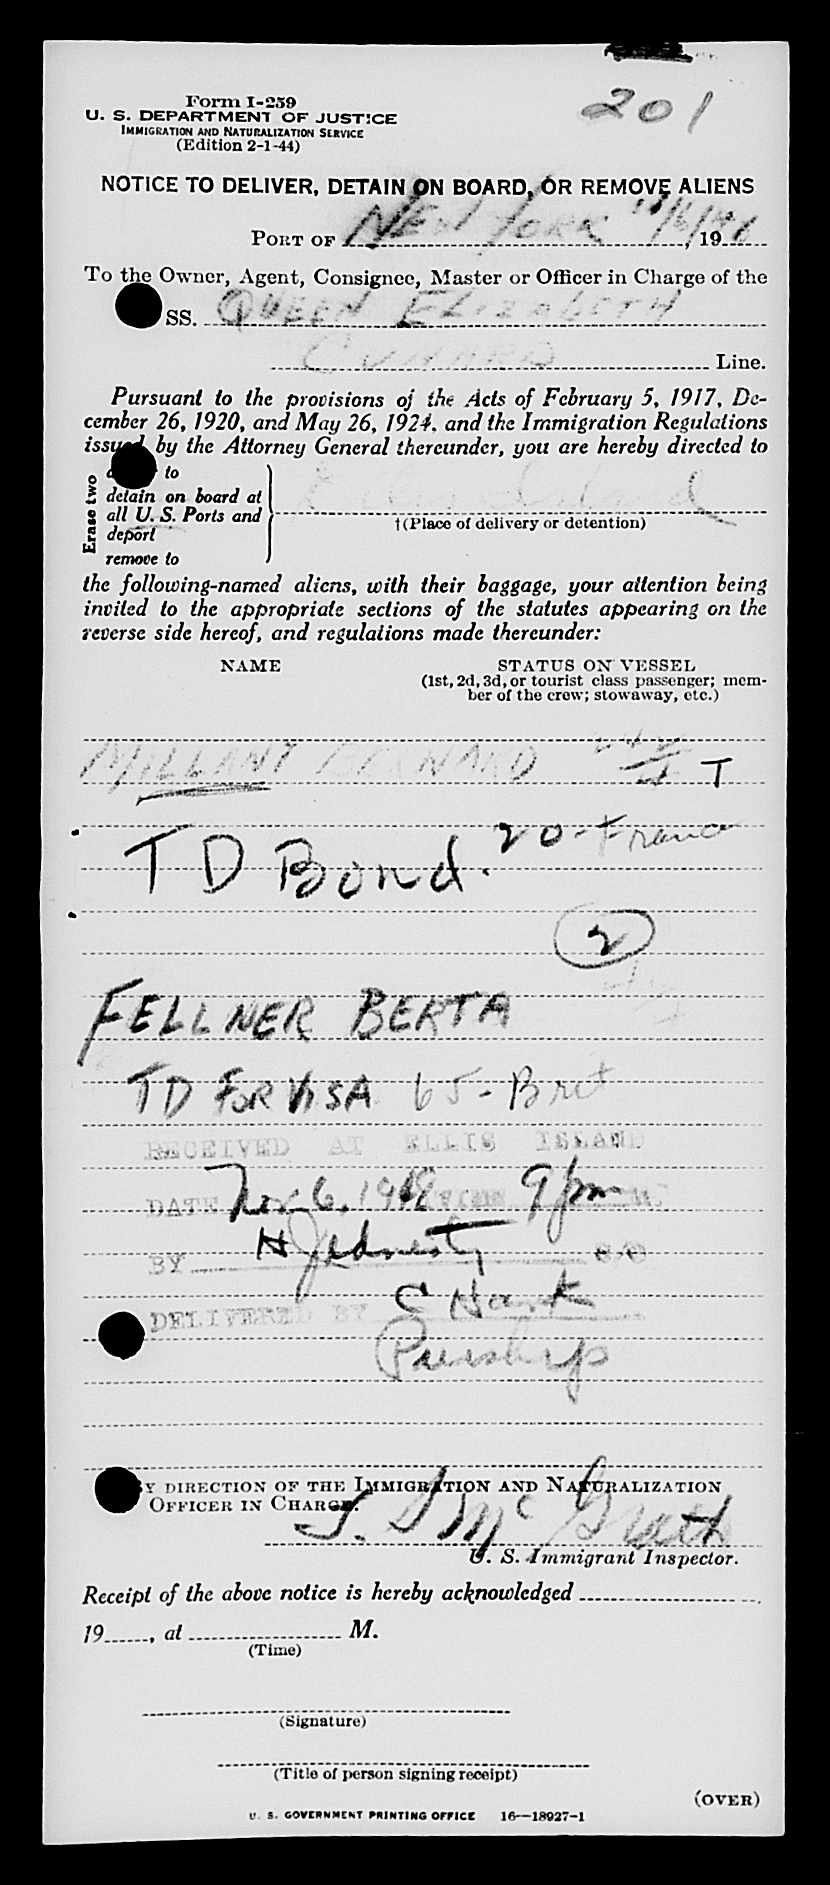 201
Form I-259
U. S. DEPARTMENT OF JUSTICE
IMMIGRATION AND NATURALIZATION SERVICE
(Edition 2-1-44)
NOTICE TO DELIVER, DETAIN ON BOARD, OR REMOVE ALIENS
PORT OF NEW YORK 11/6/, 19
To the Owner, Agent, Consignee, Master or Officer in Charge of the
SS. QUEEN ELIZABETH
CUNARD Line.
Pursuant to the provisions of the Acts of February 5, 1917, De-
cember 26, 1920, and May 26, 1924, and the Immigration Regulations
issued by the Attorney General thereunder, you are hereby directed to
Erase two
to
detain on board at
all U. S. Ports and
deport
remove to
Ellis Island
†(Place of delivery or detention)
the following-named aliens, with their baggage, your attention being
invited to the appropriate sections of the statutes appearing on the
reverse side hereof, and regulations made thereunder:
NAME STATUS ON VESSEL
(1st, 2d, 3d, or tourist class passenger; mem-
ber of the crew; stowaway, etc.)
MILLANT BERNARD T
TD Bond. 20-France
2
FELLNER BERTA
TD FOR VISA 65-Brit
RECEIVED AT ELLIS ISLAND
DATE Nov 6, 194 TIME 9 pm
BY H
DELIVERED BY C
BY DIRECTION OF THE IMMIGRATION AND NATURALIZATION
OFFICER IN CHARGE:
J. J McGrath
U. S. Immigrant Inspector.
Receipt of the above notice is hereby acknowledged
19, at M.
(Time)
(Signature)
(Title of person signing receipt)
(OVER)
U. S. GOVERNMENT PRINTING OFFICE 16—18927-1